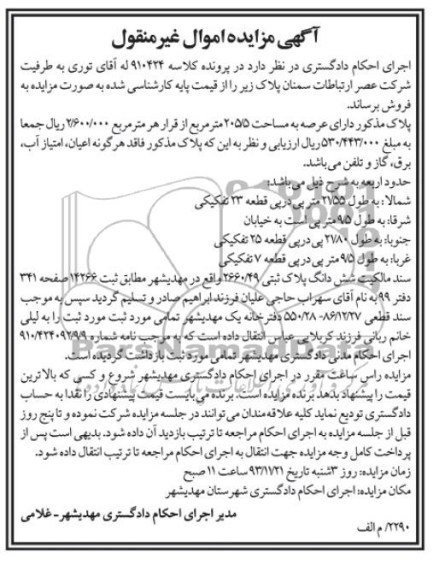 آگهی مزایده اموال غیر منقول
اجرای احکام دادگستری در نظر دارد در پرونده کلاسه ۹۱۰۴۲۴ له آقای توری به طرفیت
شرکت عصر ارتباطات سمنان پلاک زیر را از قیمت پایه کارشناسی شده به صورت مزایده به
فروش برساند.
پلاک مذکور دارای عرصه به مساحت ۲۰۵/۵ مترمربع از قرار هر مترمربع ۲/۶۰۰/۰۰۰ ریال جمعا
به مبلغ ۵۳۰/۴۴۳/۰۰۰ ریال ارزیابی و نظر به این که پلاک مذکور فاقد هرگونه اعیان، امتیاز آب،
برق، گاز و تلفن می‌باشد.
حدود اربعه به شرح ذیل می‌باشد:
شمالا: به طول ۲۱/۵۵ متر پی در پی قطعه ۲۳ تفکیکی
شرقا: به طول ۹/۵ متر پی است به خیابان
جنوبا: به طول ۲۱/۸۰ پی در پی قطعه ۲۵ تفکیکی
غربا: به طول ۹/۵ متر پی در پی قطعه ۷ تفکیکی
سند مالکیت شش دانگ پلاک ثبتی ۲۶۶۰/۴۹ واقع در مهدیشهر مطابق ثبت ۱۴۲۶۶ صفحه ۳۴۱
دفتر ۹۹ به نام آقای سهراب حاجی علیان فرزند ابراهیم صادر و تسلیم گردید سپس به موجب
سند قطعی ۸۶/۱۲/۲۷-۵۵۰۲۸ دفترخانه یک مهدیشهر تمامی مورد ثبت مورد ثبت را به لیلی
خانم ربانی فرزند کربلایی عباس انتقال داده است که با موجب نامه شماره ۹۱۰۴۲۴-۹۲/۹/۹
اجرای احکام مدنی دادگستری مهدیشهر تمامی مورد ثبت بازداشت گردیده است.
مزایده راس ساعت مقرر در اجرای احکام دادگستری مهدیشهر شروع و کسی که بالاترین
قیمت را پیشنهاد بدهد برنده مزایده است. برنده می‌بایست قیمت پیشنهادی را نقدا به حساب
دادگستری تودیع نماید کلیه علاقه‌مندان می‌توانند در جلسه مزایده شرکت نموده و تا پنج روز
قبل از جلسه مزایده به اجرای احکام مراجعه تا ترتیب بازدید آن داده شود. بدیهی است پس از
پرداخت کامل وجه مزایده جهت انتقال به اجرای احکام مراجعه تا ترتیب انتقال داده شود.
زمان مزایده: روز ۳شنبه تاریخ ۹۳/۱/۲۱ ساعت ۱۱ صبح
مکان مزایده: اجرای احکام دادگستری شهرستان مهدیشهر
مدیر اجرای احکام دادگستری مهدیشهر- غلامی
۲۲۹۰/ م الف